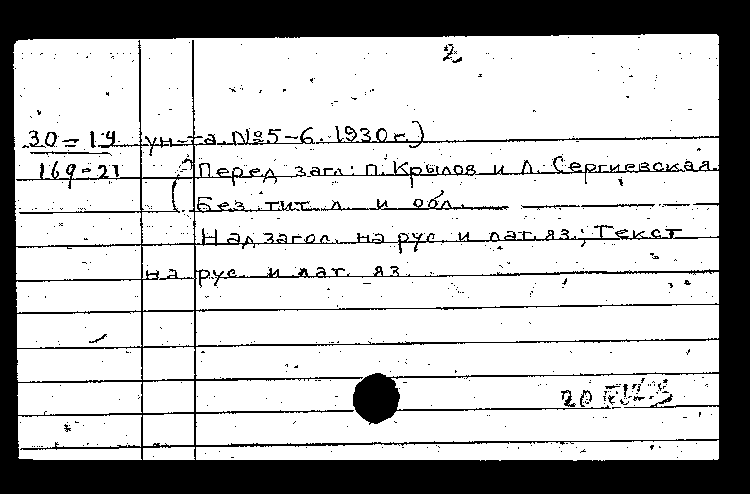 2
30=14 ун-та. №5-6. 1930 г.)
169-21 Перед загл: П. Крылов и Л. Сергиевская.
Без тит. л. и обл.
Над загол. на рус. и лат. яз.; Текст
на рус. и лат. яз.
20